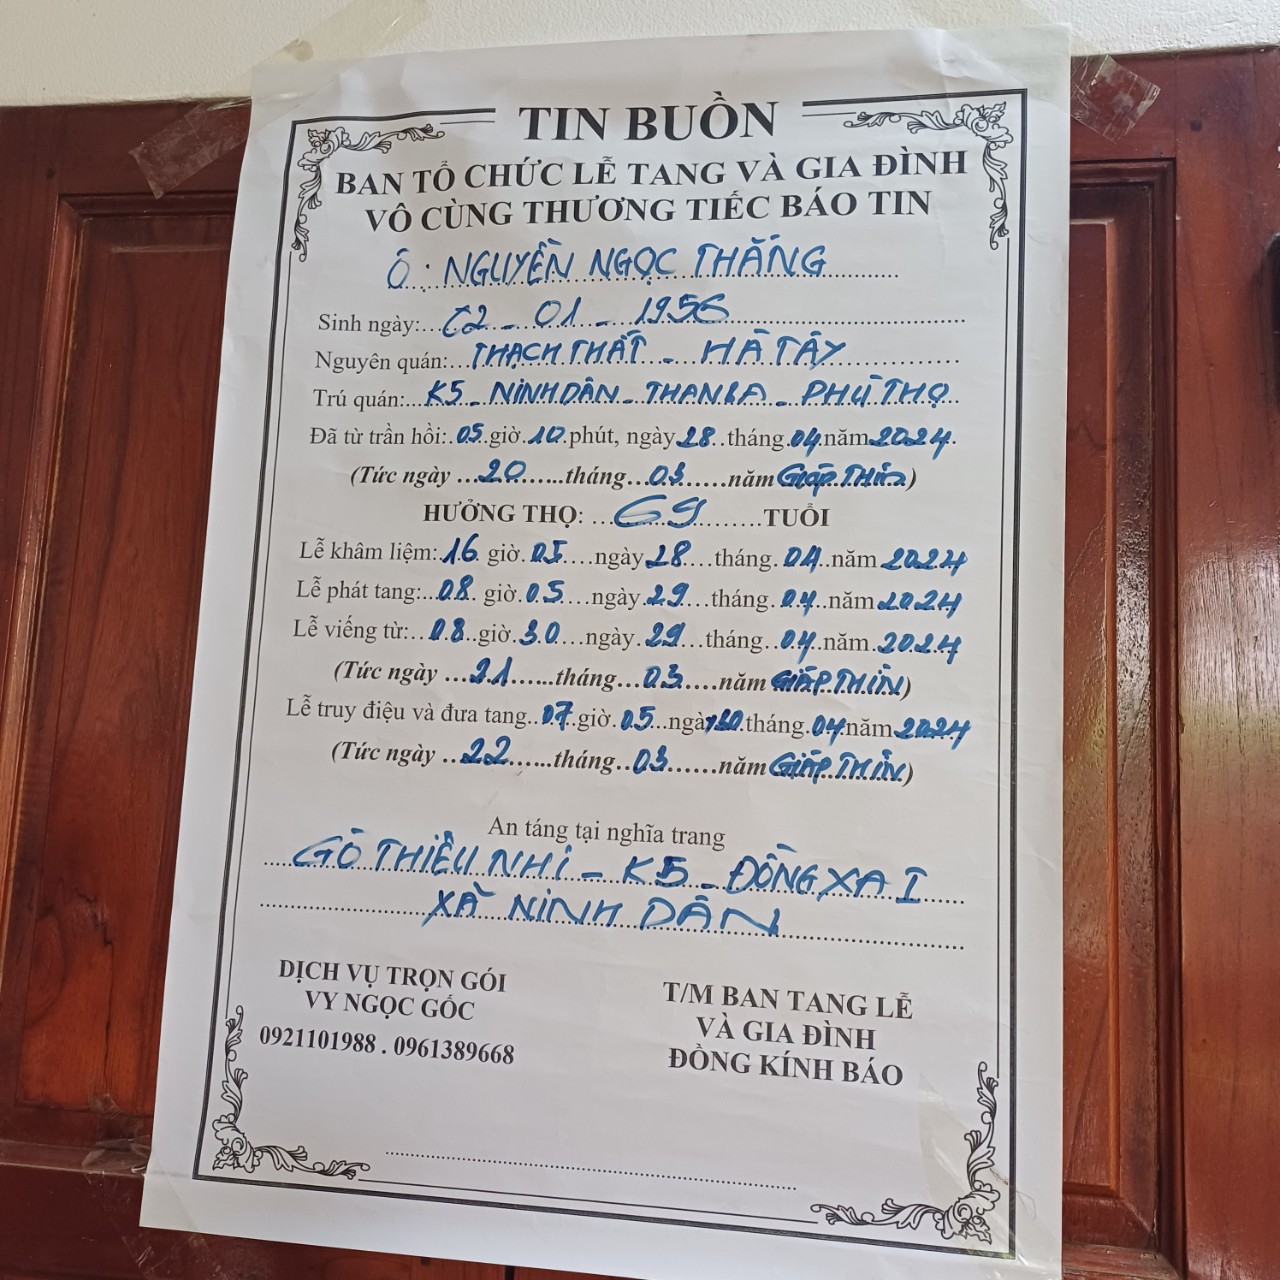 TIN BUỒN
BAN TỔ CHỨC LỄ TANG VÀ GIA ĐÌNH
VÔ CÙNG THƯƠNG TIẾC BÁO TIN
Ô: NGUYỄN NGỌC THẮNG
Sinh ngày: 02 - 01 - 1956
Nguyên quán: THẠCH THẤT - HÀ TÂY
Trú quán: K5 - NINH DÂN - THANH BA - PHÚ THỌ
Đã từ trần hồi: 05 giờ 10 phút, ngày 28 tháng 04 năm 2024.
(Tức ngày 20 tháng 03 năm GIÁP THÌN)
HƯỞNG THỌ: 69 TUỔI
Lễ khâm liệm: 16 giờ 05 ngày 28 tháng 04 năm 2024
Lễ phát tang: 08 giờ 05 ngày 29 tháng 04 năm 2024
Lễ viếng từ: 08 giờ 30 ngày 29 tháng 04 năm 2024
(Tức ngày 21 tháng 03 năm GIÁP THÌN)
Lễ truy điệu và đưa tang 07 giờ 05 ngày 30 tháng 04 năm 2024
(Tức ngày 22 tháng 03 năm GIÁP THÌN)
An táng tại nghĩa trang
GÒ THIẾU NHI - K5 - ĐỒNG XA I
XÃ NINH DÂN
DỊCH VỤ TRỌN GÓI
VY NGỌC GỐC
0921101988 . 0961389668
T/M BAN TANG LỄ
VÀ GIA ĐÌNH
ĐỒNG KÍNH BÁO